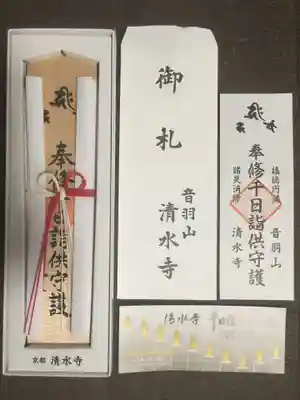 奉修千日詣供守護
京都 清水寺
御札
音羽山
清水寺
奉修千日詣供守護
諸災消除
音羽山
清水寺
清水寺